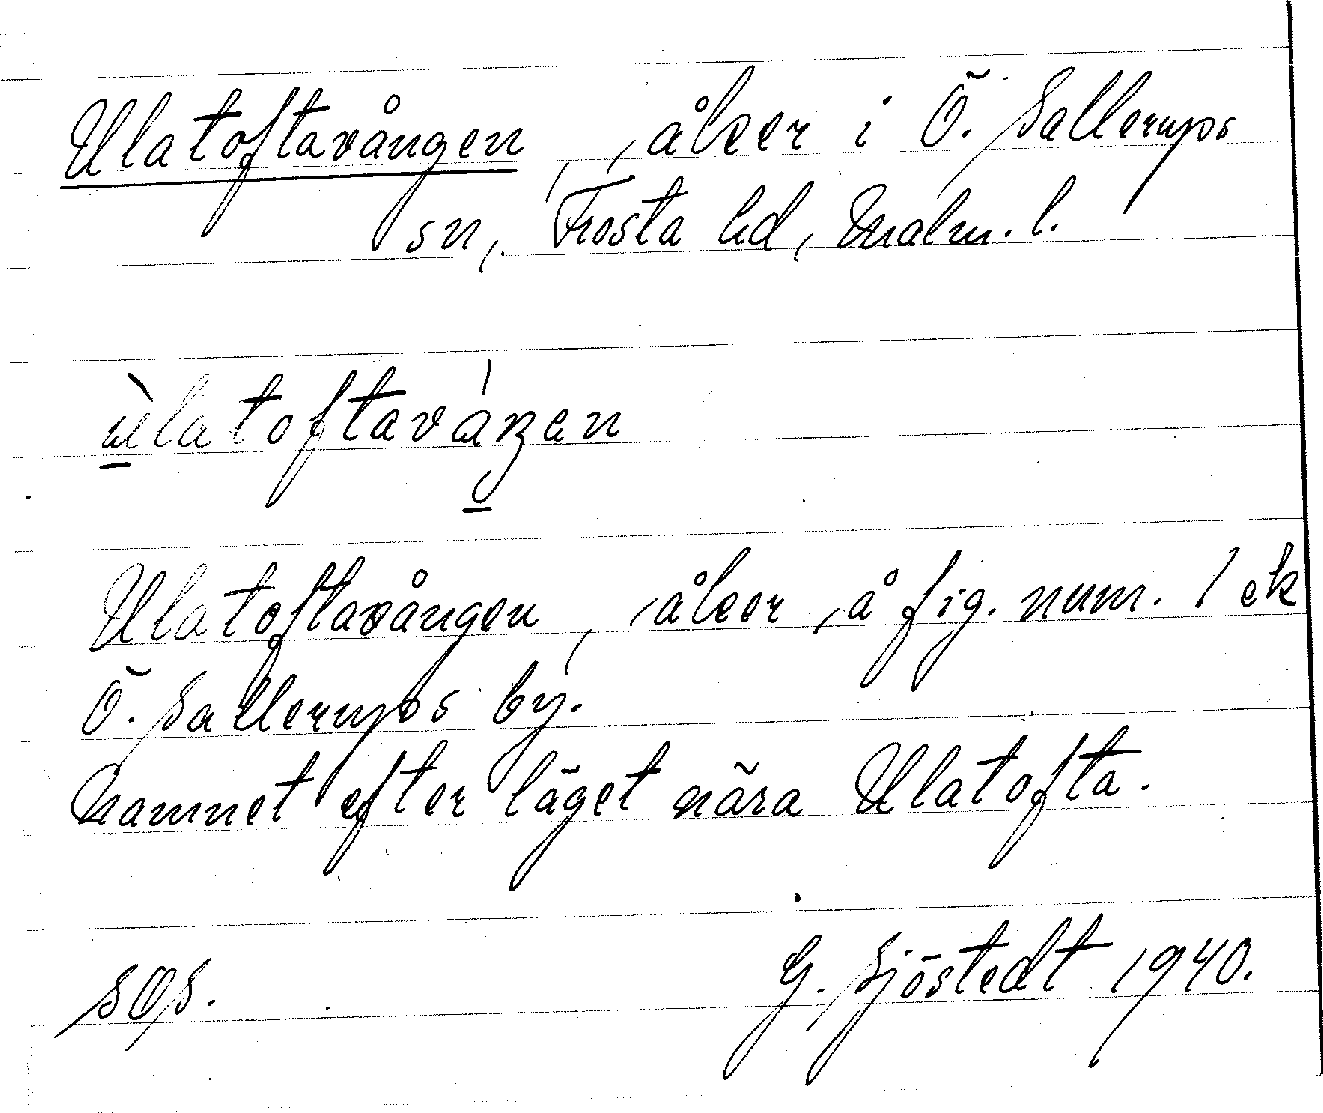 Ulatoftavången, åker i Ö. Sallerups
sn, Frosta hd, Malm. l.
ùlatoftaváŋen
Ulatoftavången, åker å fig. num. 1 ek
Ö. Sallerups by.
Namnet efter läget nära Ulatofta.
SOS. G. Sjöstedt 1940.